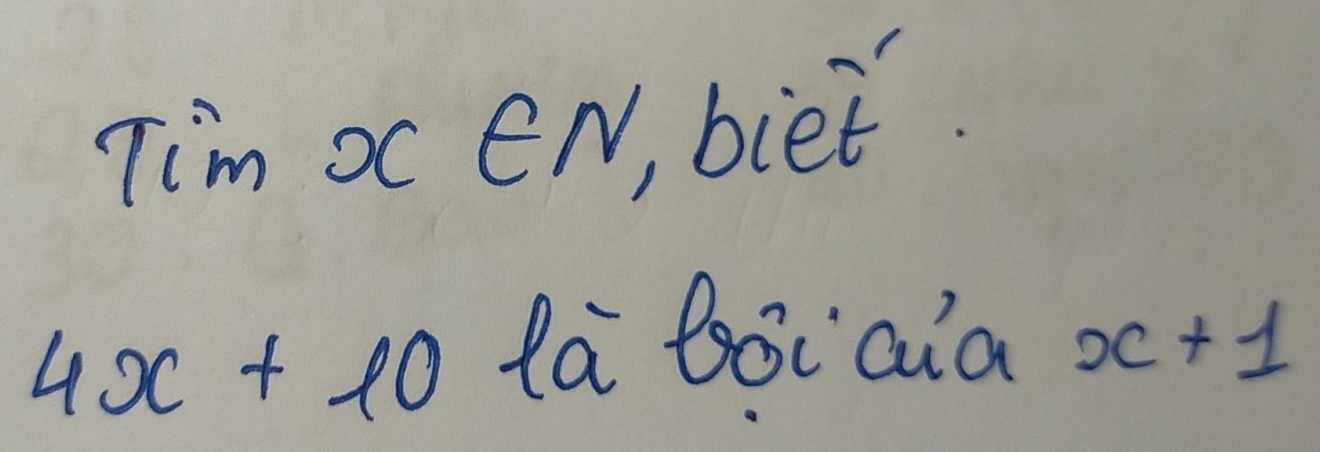 Tìm x ∈ N, biết
4x + 10 là bội của x + 1